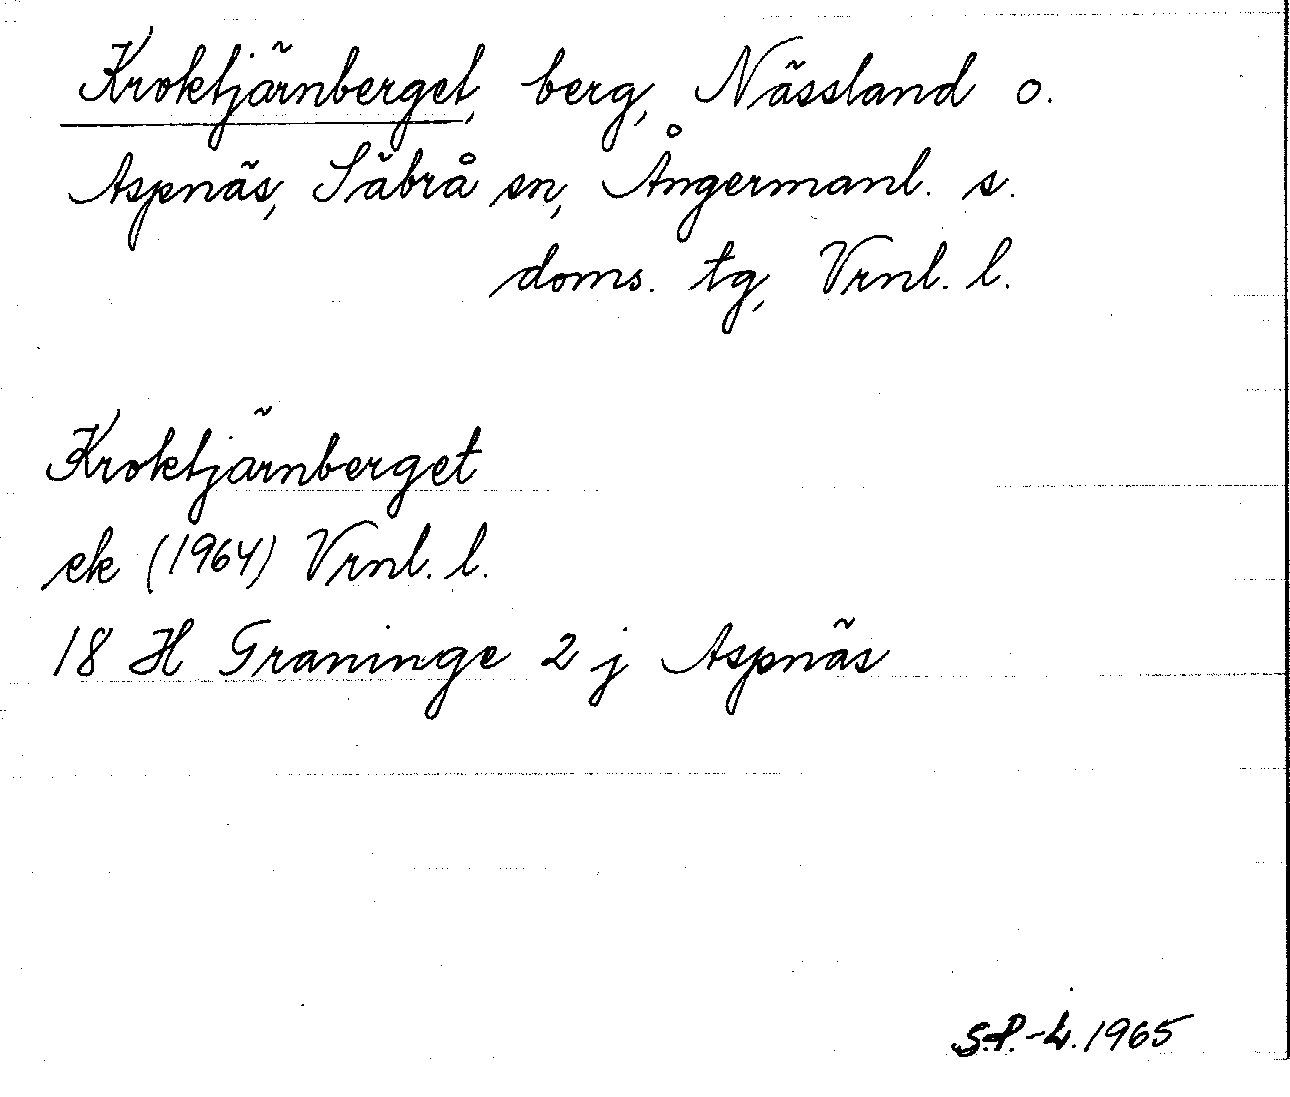 Kroktjärnberget, berg, Nässland o.
Aspnäs, Säbrå sn, Ångermanl. s.
doms. tg, Vrnl. l.
Kroktjärnberget
ek (1964) Vrnl. l.
18 H Graninge 2 j Aspnäs
S.P.-L. 1965